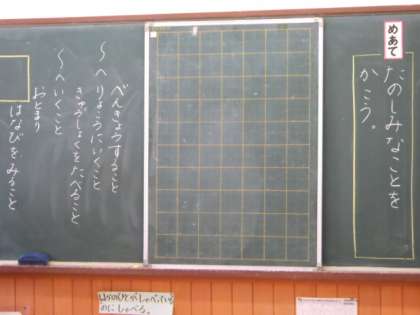 めあて
たのしみなことを
かこう。
べんきょうすること
〜へりょこうにいくこと
きゅうしょくをたべること
〜へいくこと
おとまり
はなびをみること
ほかのひとがしゃべっている
のにしゃべる。